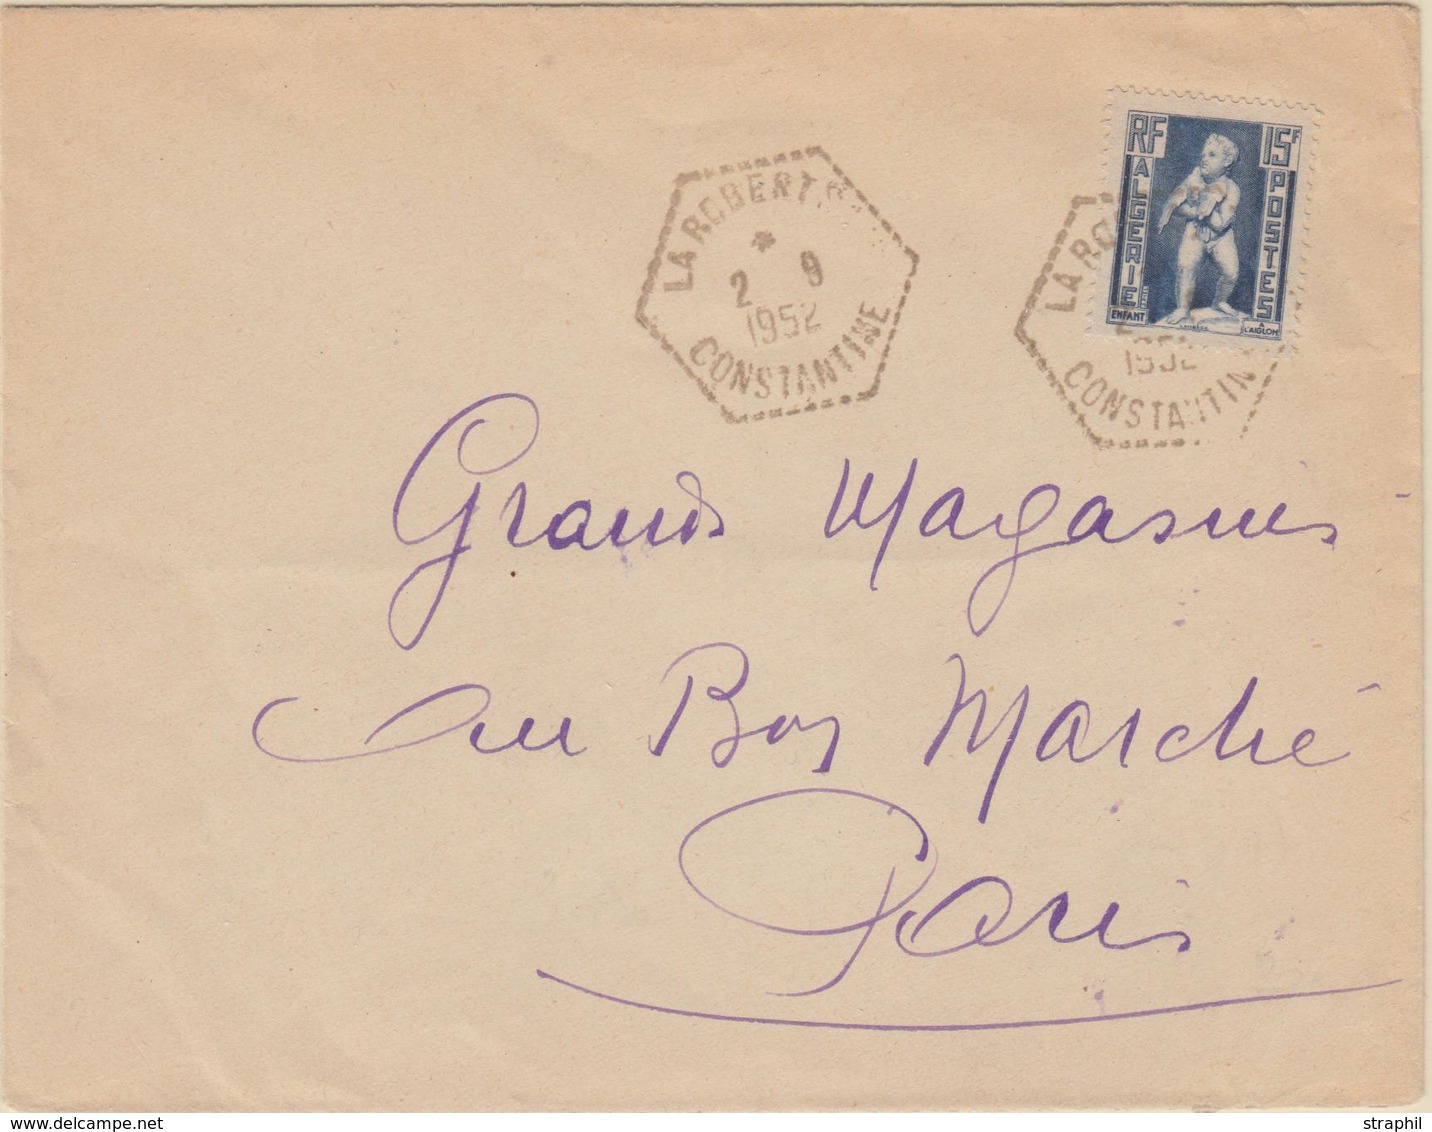 LA ROBERTS
*
2 9
1952
CONSTANTINE
RF
15F
ALGERIE
POSTES
ENFANT
A L'AIGLON
LA RO
1952
CONSTANTIN
Grands Magasins
Au Bon Marché
Paris
delcampe.net
straphil